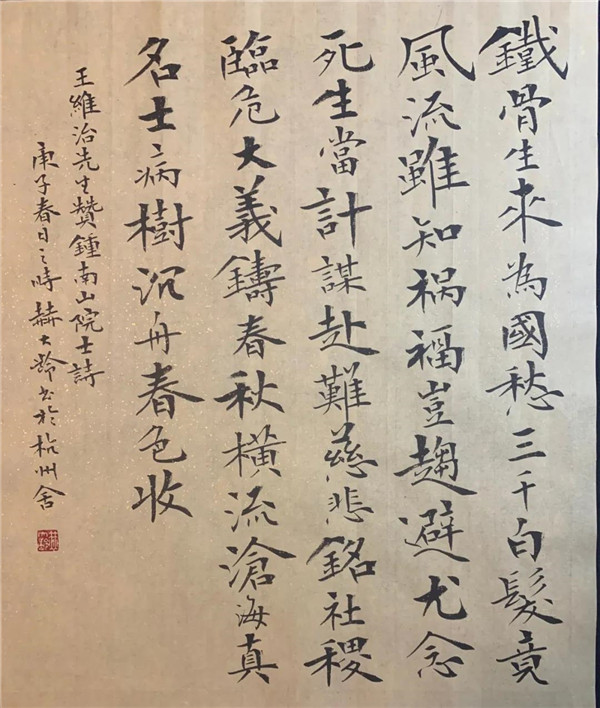 鐵骨生來為國愁三千白髮竟
風流雖知禍福豈趨避尤念
死生當計謀赴難慈悲銘社稷
臨危大義鑄春秋橫流滄海真
名士病樹沉舟春色收
王維治先生贊鍾南山院士詩
庚子春日之時赫大齡書於杭州舍